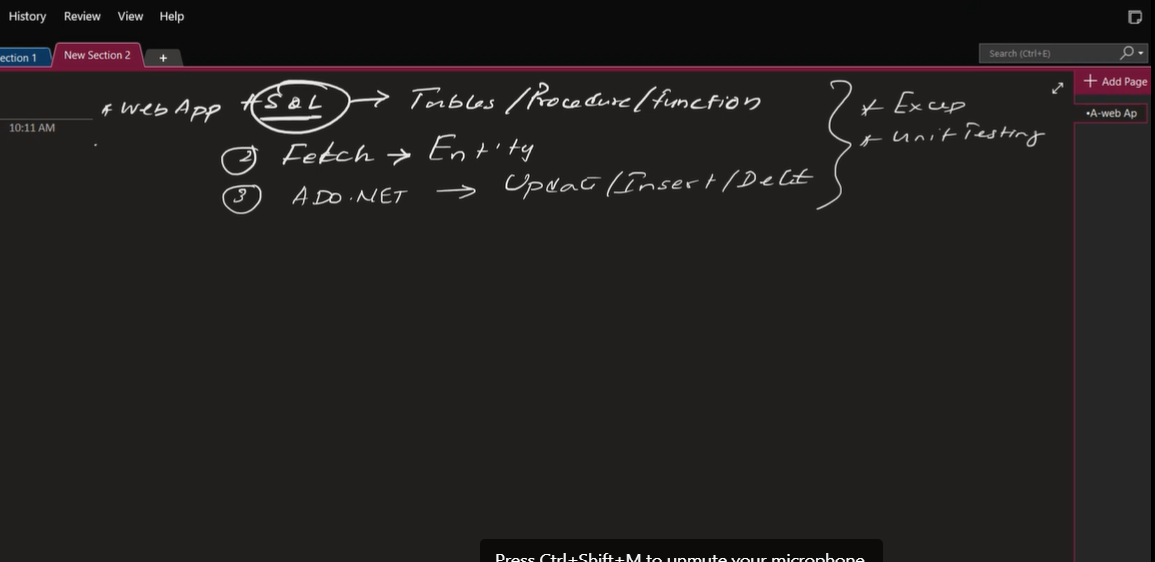 History Review View Help
ection 1 New Section 2 +
Search (Ctrl+E)
+ Add Page
A-web Ap
10:11 AM
* Web App * SQL → Tables / Procedure / function
② Fetch → Entity
③ ADO.NET → Updat / Insert / Delet
* Excep
* Unit Testing
Press Ctrl+Shift+M to unmute your microphone